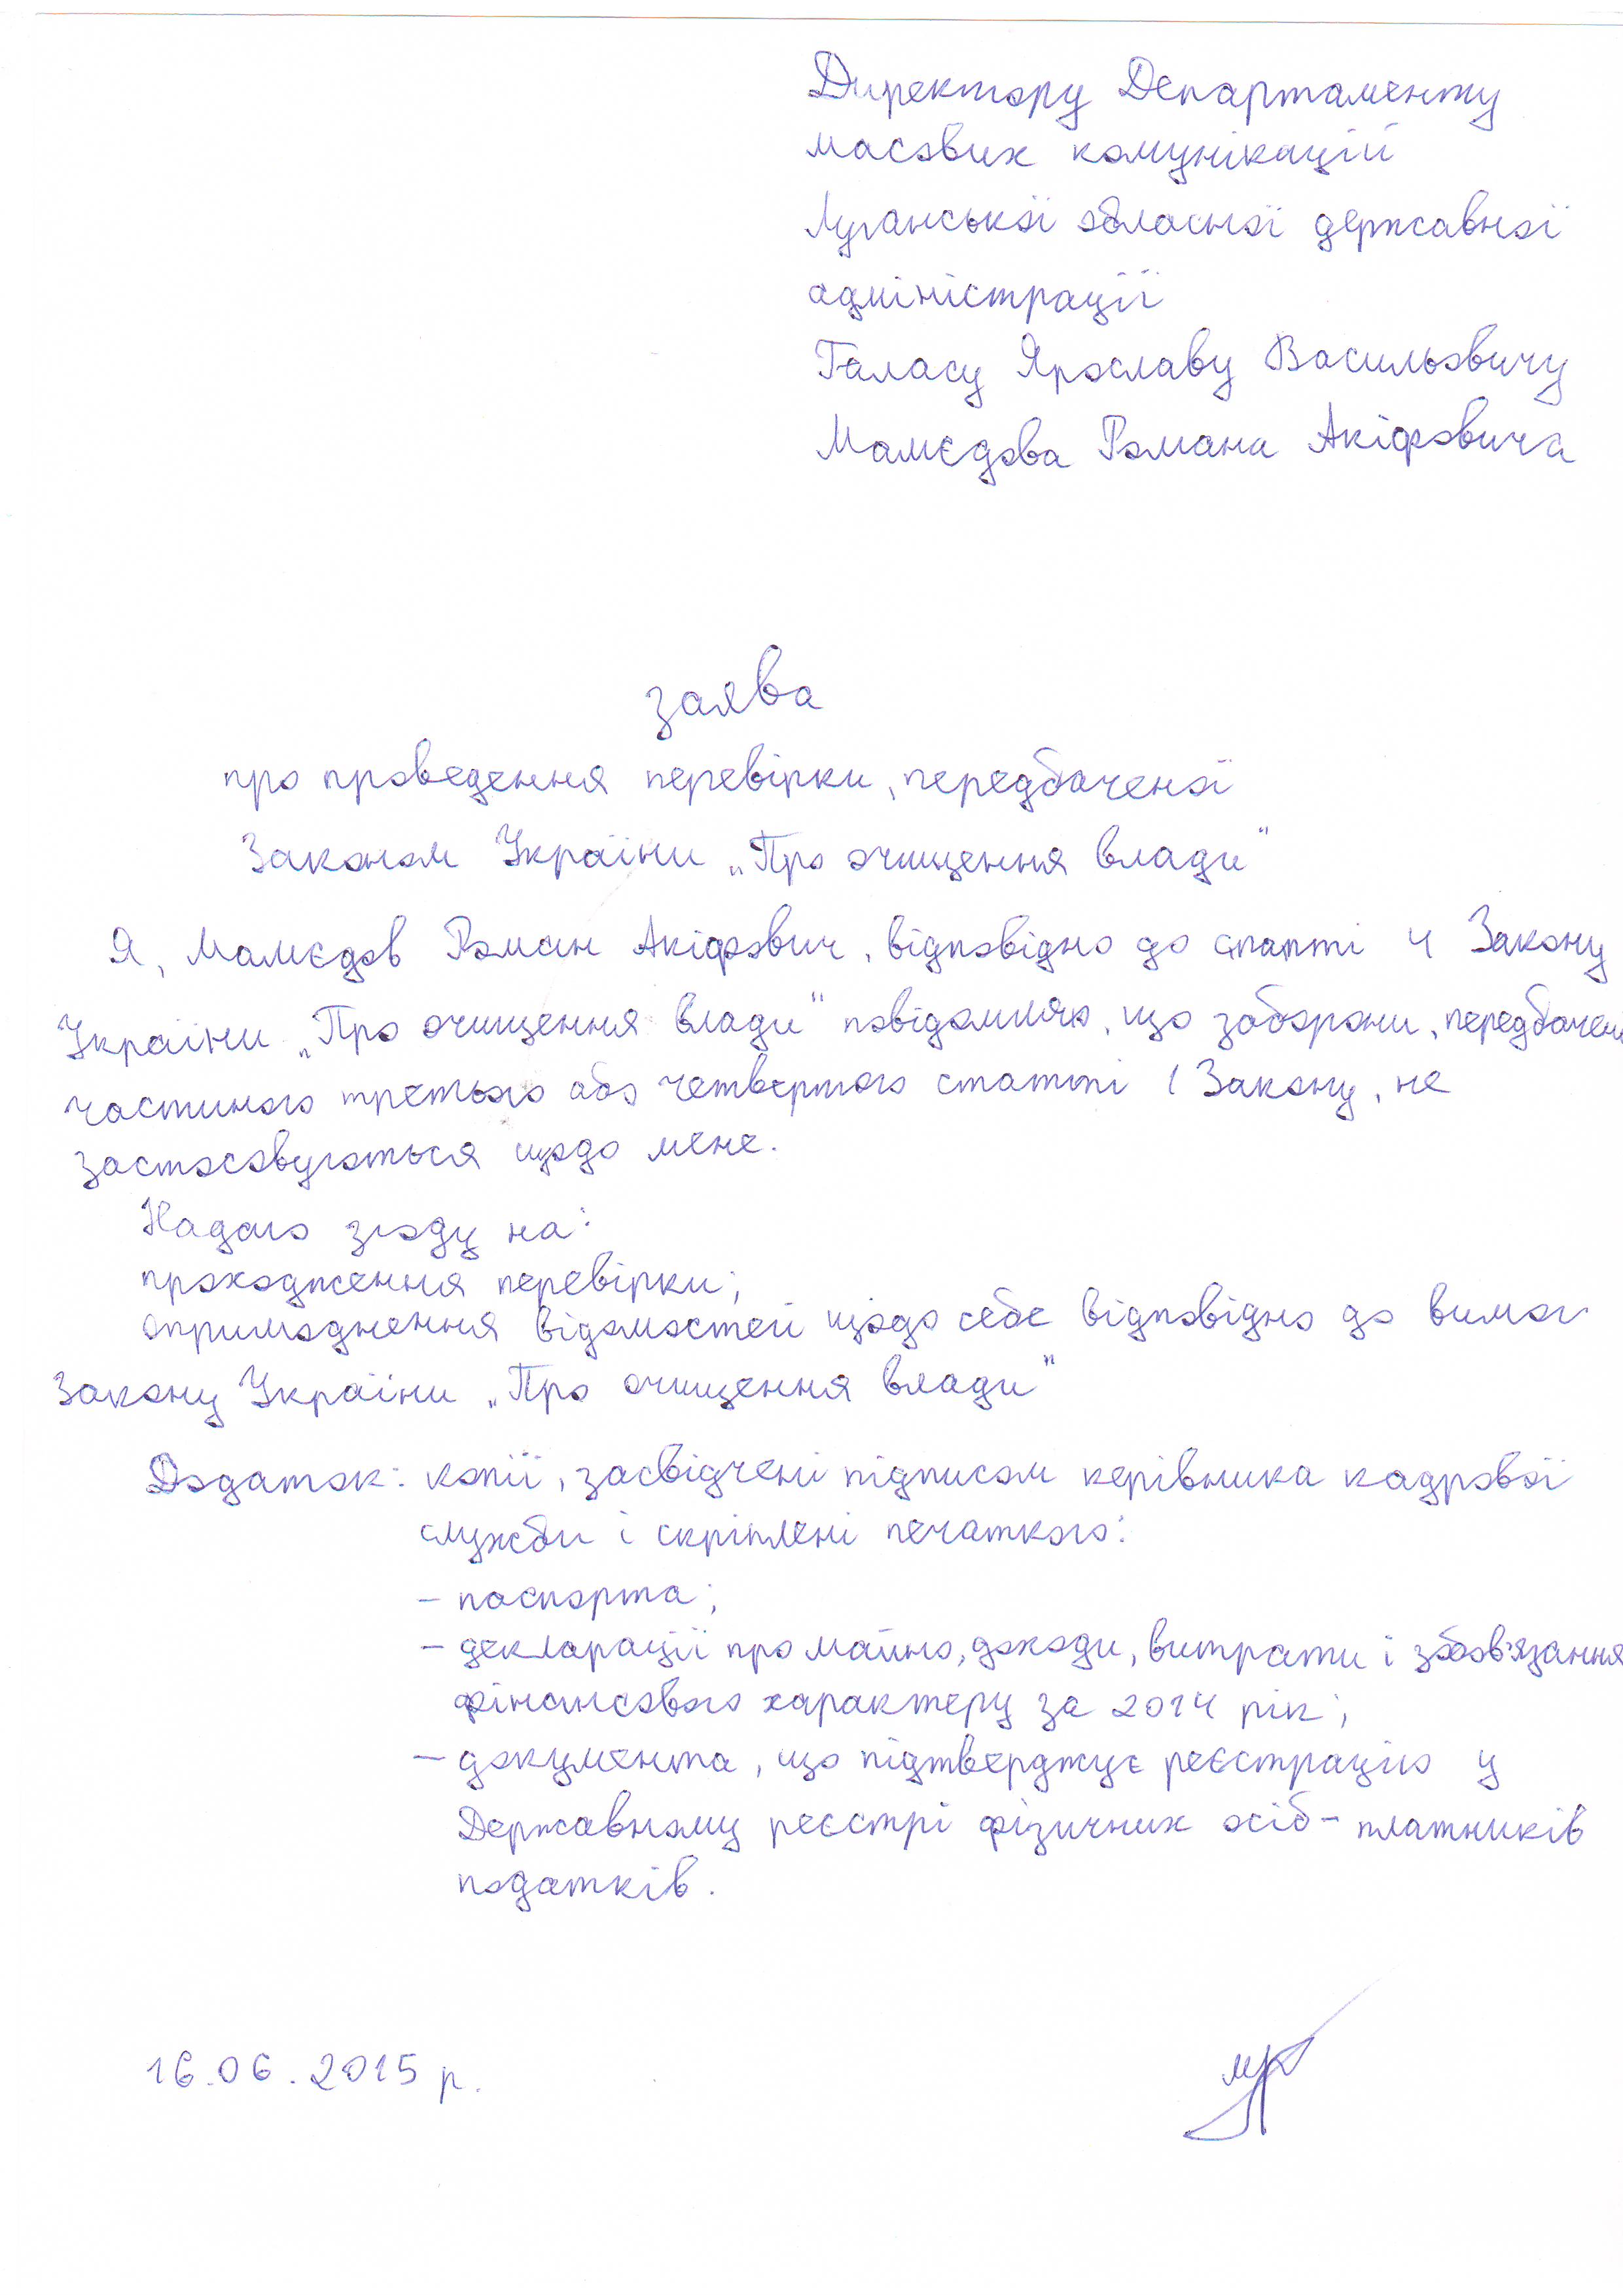 Директору Департаменту
масових комунікацій
Луганської обласної державної
адміністрації
Галасу Ярославу Васильовичу
Мамєдова Романа Акіфовича
заява
про проведення перевірки, передбаченої
Законом України „Про очищення влади"
Я, Мамєдов Роман Акіфович, відповідно до статті 4 Закону
України „Про очищення влади" повідомляю, що заборони, передбачені
частиною третьою або четвертою статті 1 Закону, не
застосовуються щодо мене.
Надаю згоду на:
проходження перевірки;
оприлюднення відомостей щодо себе відповідно до вимог
Закону України „Про очищення влади"
Додаток: копії, засвідчені підписом керівника кадрової
служби і скріплені печаткою:
- паспорта;
- декларації про майно, доходи, витрати і зобов'язання
фінансового характеру за 2014 рік;
- документа, що підтверджує реєстрацію у
Державному реєстрі фізичних осіб - платників
податків.
16.06.2015 р.